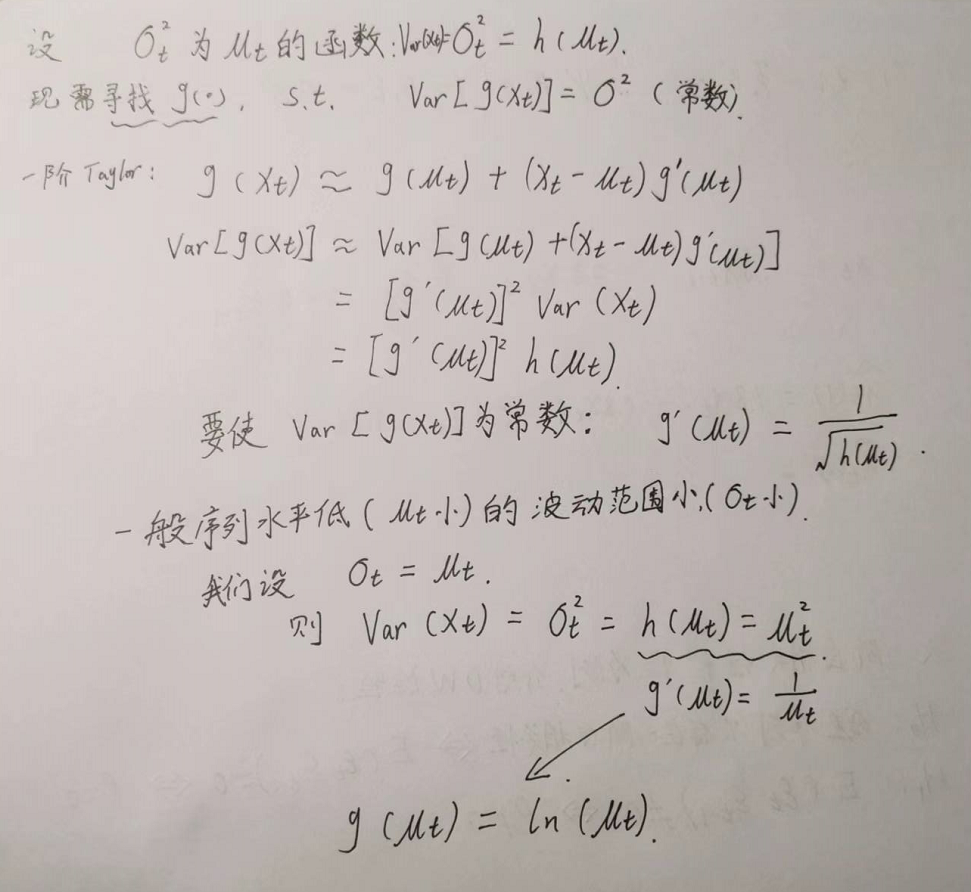 设 σt² 为 μt 的函数: Var(Xt)=σt² = h(μt).
现需寻找 g(·), s.t. Var[g(Xt)] = σ² (常数).
一阶 Taylor: g(Xt) ≈ g(μt) + (Xt - μt) g'(μt)
Var[g(Xt)] ≈ Var [g(μt) + (Xt - μt) g'(μt)]
= [g'(μt)]² Var (Xt)
= [g'(μt)]² h(μt).
要使 Var [g(Xt)] 为常数: g'(μt) = 1/√h(μt) .
一般序列水平低 (μt 小) 的波动范围小 (σt 小).
我们设 σt = μt.
则 Var (Xt) = σt² = h(μt) = μt².
g'(μt) = 1/μt
g(μt) = ln(μt).